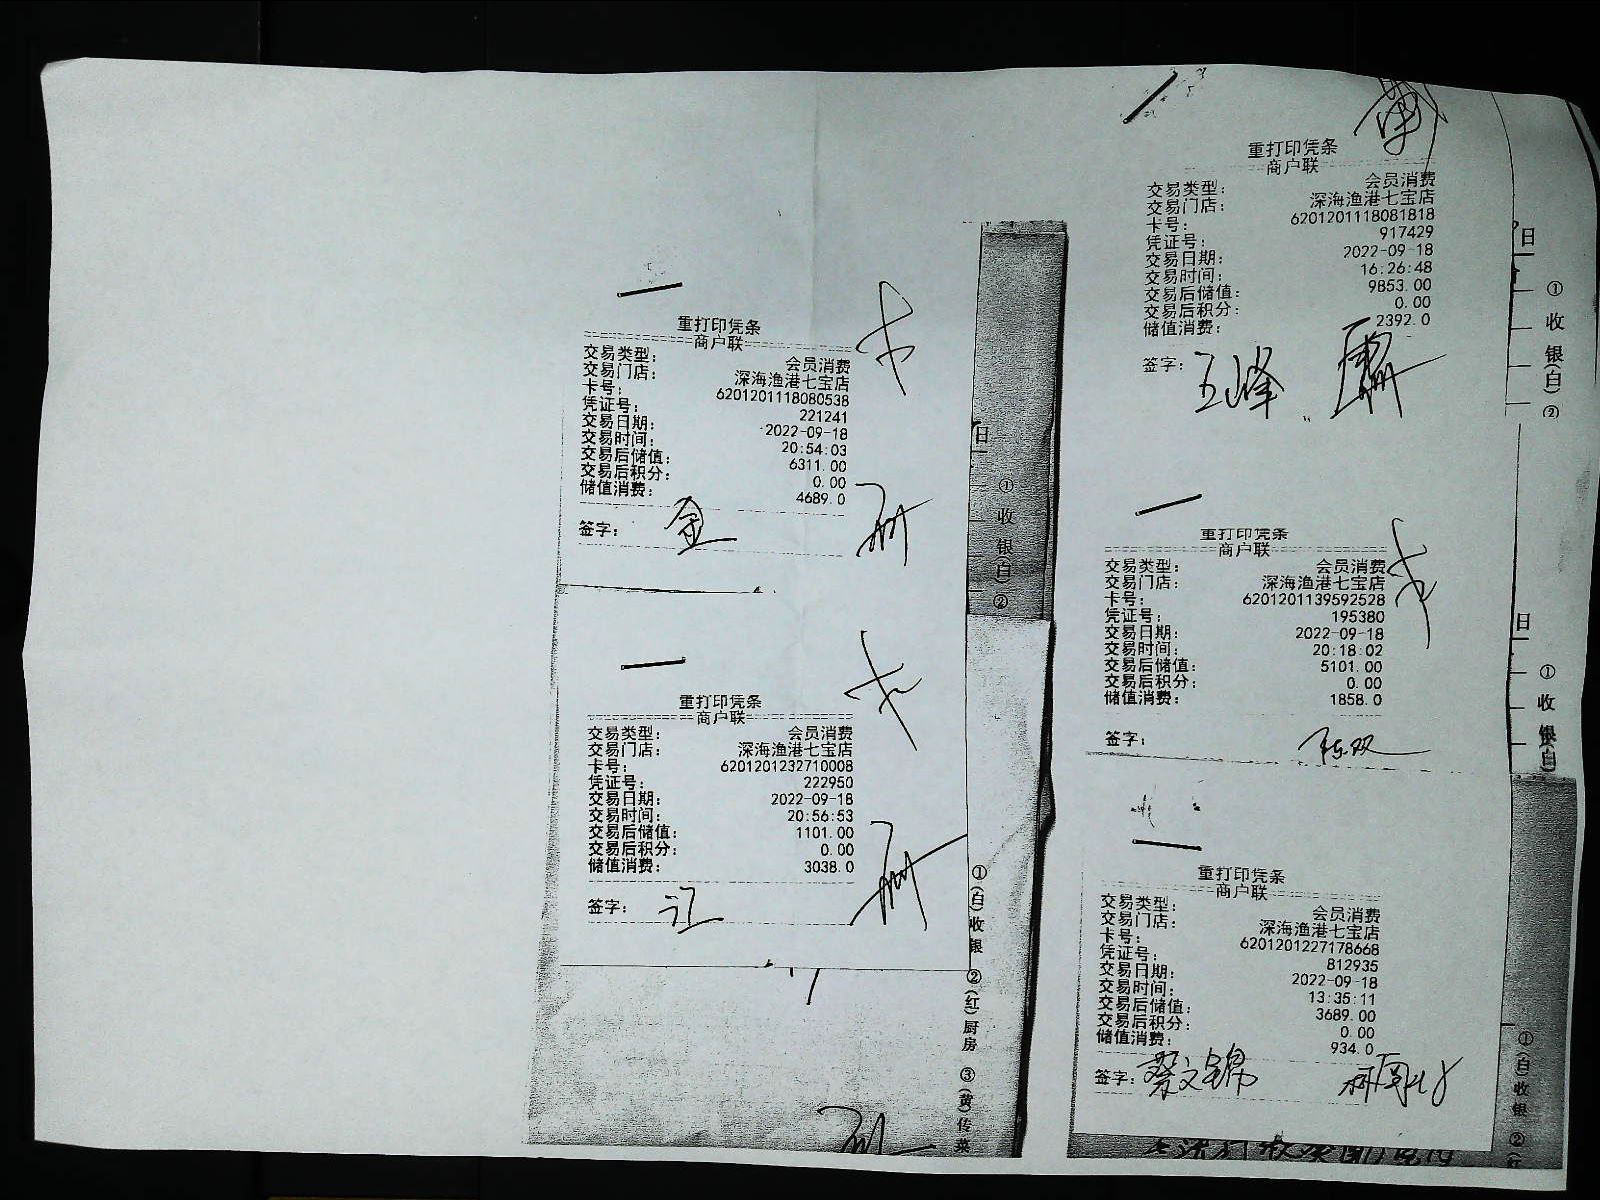 重打印凭条
商户联
交易类型: 会员消费
交易门店: 深海渔港七宝店
卡号: 6201201118080538
凭证号: 221241
交易日期: 2022-09-18
交易时间: 20:54:03
交易后储值: 6311.00
交易后积分: 0.00
储值消费: 4689.0
签字: 金
日
①收银(白)②
重打印凭条
商户联
交易类型: 会员消费
交易门店: 深海渔港七宝店
卡号: 6201201232710008
凭证号: 222950
交易日期: 2022-09-18
交易时间: 20:56:53
交易后储值: 1101.00
交易后积分: 0.00
储值消费: 3038.0
签字:
①(白)收银 ②(红)厨房 ③(黄)传菜
重打印凭条
商户联
交易类型: 会员消费
交易门店: 深海渔港七宝店
卡号: 6201201118081818
凭证号: 917429
交易日期: 2022-09-18
交易时间: 16:26:48
交易后储值: 9853.00
交易后积分: 0.00
储值消费: 2392.0
签字:
日
①收银(白)②
重打印凭条
商户联
交易类型: 会员消费
交易门店: 深海渔港七宝店
卡号: 6201201139592528
凭证号: 195380
交易日期: 2022-09-18
交易时间: 20:18:02
交易后储值: 5101.00
交易后积分: 0.00
储值消费: 1858.0
签字: 陈双
日
①收银(白)
重打印凭条
商户联
交易类型: 会员消费
交易门店: 深海渔港七宝店
卡号: 6201201227178668
凭证号: 812935
交易日期: 2022-09-18
交易时间: 13:35:11
交易后储值: 3689.00
交易后积分: 0.00
储值消费: 934.0
签字: 蔡文锦
①(白)收银 ②(红